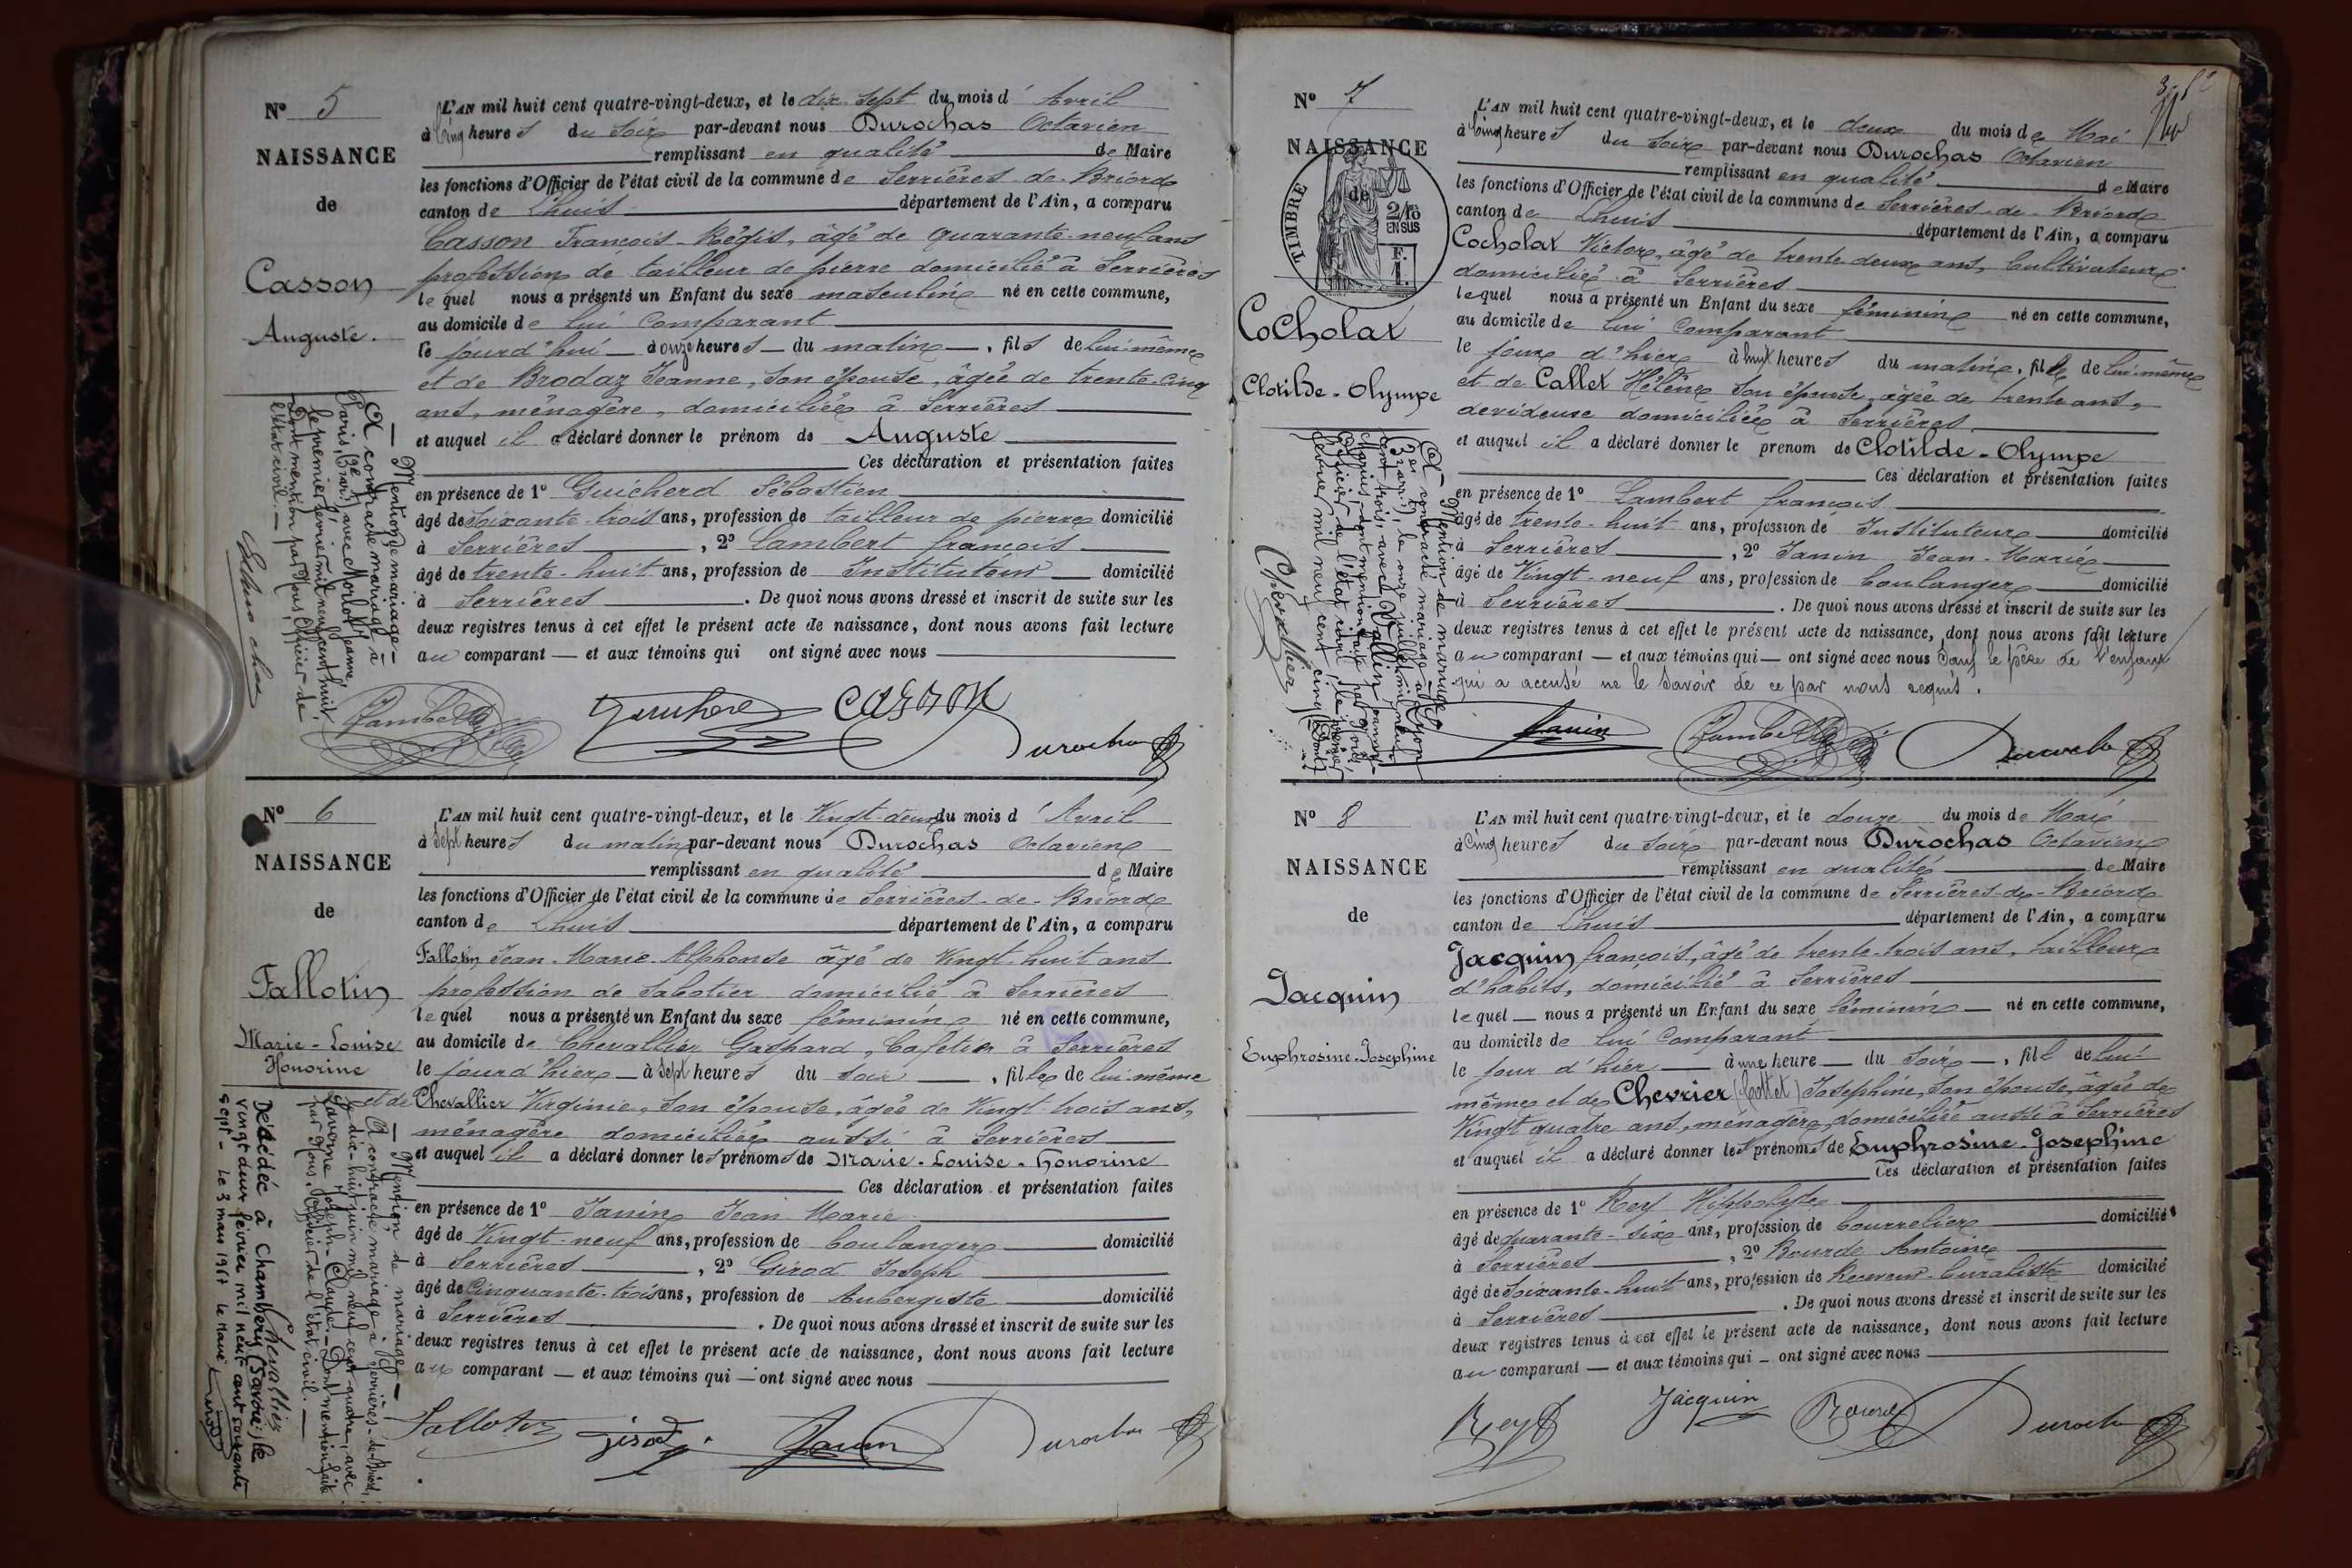 N° 5
NAISSANCE
de
Casson
Auguste.
L'AN mil huit cent quatre-vingt-deux, et le dix-sept du mois d'Avril
à Cinq heures du soir par-devant nous Durochas Octavien
remplissant en qualité de Maire
les fonctions d'Officier de l'état civil de la commune de Serrières-de-Briord
canton de Lhuis département de l'Ain, a comparu
Casson François-Régis, âgé de quarante-neuf ans
profession de tailleur de pierre domicilié à Serrières
lequel nous a présenté un Enfant du sexe masculin né en cette commune,
au domicile de lui comparant
le jourd'hui à onze heures du matin, fils de lui même
et de Brodaz Jeanne, son épouse, âgée de trente-cinq
ans, ménagère, domiciliée à Serrières
et auquel il a déclaré donner le prénom de Auguste
Ces déclaration et présentation faites
en présence de 1° Guicherd Sébastien
âgé de soixante-trois ans, profession de tailleur de pierre domicilié
à Serrières, 2° Lambert françois
âgé de trente-huit ans, profession de Instituteur domicilié
à Serrières. De quoi nous avons dressé et inscrit de suite sur les
deux registres tenus à cet effet le présent acte de naissance, dont nous avons fait lecture
au comparant — et aux témoins qui ont signé avec nous
— Mention de mariage —
A contracté mariage à
Paris, avec Morlot Jeanne,
le premier février mil neuf cent huit.
Dont mention par Nous, Officier de
l'état civil. —
Lambert
Guicherd
CASSON
Durochas
N° 6
NAISSANCE
de
Fallotin
Marie-Louise
Honorine
L'AN mil huit cent quatre-vingt-deux, et le Vingt-deux du mois d'Avril
à Sept heures du matin par-devant nous Durochas Octavien
remplissant en qualité de Maire
les fonctions d'Officier de l'état civil de la commune de Serrières-de-Briord
canton de Lhuis département de l'Ain, a comparu
Fallotin Jean-Marie-Alphonse âgé de Vingt-huit ans
profession de sabotier domicilié à Serrières
lequel nous a présenté un Enfant du sexe féminin né en cette commune,
au domicile de Chevallier Gaspard, Cafetier à Serrières
le jour d'hier — à sept heures du soir —, fille de lui même
et de Chevallier Virginie, son épouse, âgée de Vingt-trois ans,
ménagère domiciliée aussi à Serrières
et auquel il a déclaré donner les prénoms de Marie-Louise-Honorine
Ces déclaration et présentation faites
en présence de 1° Janin Jean Marie
âgé de Vingt-neuf ans, profession de boulanger domicilié
à Serrières, 2° Girod Joseph
âgé de Cinquante-trois ans, profession de Aubergiste domicilié
à Serrières. De quoi nous avons dressé et inscrit de suite sur les
deux registres tenus à cet effet le présent acte de naissance, dont nous avons fait lecture
au comparant — et aux témoins qui — ont signé avec nous
— Mention de mariage —
A contracté mariage à Serrières-de-Briord,
le dix-huit juin mil neuf cent quatre, avec
Joseph-Claude. — Dont mention faite
par Nous, Officier de l'état civil. —
Chevallier
Décédée à Chambéry (Savoie) le
vingt deux février mil neuf cent soixante
sept - Le 3 mars 1967 Le Maire
Fallotin
Girod
Janin
Durochas
N° 7
NAISSANCE
de
TIMBRE
2/10
EN SUS
F.
1.
Cocholat
Clotilde-Olympe
L'AN mil huit cent quatre-vingt-deux, et le deux du mois de Mai
à Cinq heures du soir par-devant nous Durochas Octavien
remplissant en qualité de Maire
les fonctions d'Officier de l'état civil de la commune de Serrières-de-Briord
canton de Lhuis département de l'Ain, a comparu
Cocholat Victor, âgé de trente-deux ans, Cultivateur
domicilié à Serrières
lequel nous a présenté un Enfant du sexe féminin né en cette commune,
au domicile de lui comparant
le jour d'hier à huit heures du matin, fille de lui-même
et de Callet Hélène son épouse, âgée de trente ans,
devideuse domiciliée à Serrières
et auquel il a déclaré donner le prenom de Clotilde-Olympe
Ces déclaration et présentation faites
en présence de 1° Lambert françois
âgé de trente-huit ans, profession de Instituteur domicilié
à Serrières, 2° Janin Jean-Marie
âgé de Vingt-neuf ans, profession de boulanger domicilié
à Serrières. De quoi nous avons dressé et inscrit de suite sur les
deux registres tenus à cet effet le présent acte de naissance, dont nous avons fait lecture
au comparant — et aux témoins qui — ont signé avec nous sauf le père de l'enfant
qui a accusé ne le savoir de ce par nous requis.
— Mention de mariage —
A contracté mariage à Lyon
le onze juillet mil neuf
cent trois, avec
Marius, dont mention faite par Nous,
Officier de l'état civil, le premier
février mil neuf cent cinq. Dont
Chevallier
Janin
Lambert
Durochas
N° 8
NAISSANCE
de
Jacquin
Euphrosine-Josephine
L'AN mil huit cent quatre-vingt-deux, et le douze du mois de Mai
à Cinq heures du soir par-devant nous Durochas Octavien
remplissant en qualité de Maire
les fonctions d'Officier de l'état civil de la commune de Serrières-de-Briord
canton de Lhuis département de l'Ain, a comparu
Jacquin françois, âgé de trente-trois ans, tailleur
d'habits, domicilié à Serrières
lequel — nous a présenté un Enfant du sexe féminin — né en cette commune,
au domicile de lui comparant
le jour d'hier — à une heure — du soir —, fill de lui-
même et de Chevrier (Cottet) Josephine, son épouse, âgée de
Vingt quatre ans, ménagère, domiciliée aussi à Serrières
et auquel il a déclaré donner les prénoms de Euphrosine-Josephine
Ces déclaration et présentation faites
en présence de 1° Rey Hippolyte
âgé de quarante-six ans, profession de bourrelier domicilié
à Serrières, 2° Bourde Antoine
âgé de Soixante-huit ans, profession de Receveur-Buraliste domicilié
à Serrières. De quoi nous avons dressé et inscrit de suite sur les
deux registres tenus à cet effet le présent acte de naissance, dont nous avons fait lecture
au comparant — et aux témoins qui — ont signé avec nous
Rey
Jacquin
Bourde
Durochas